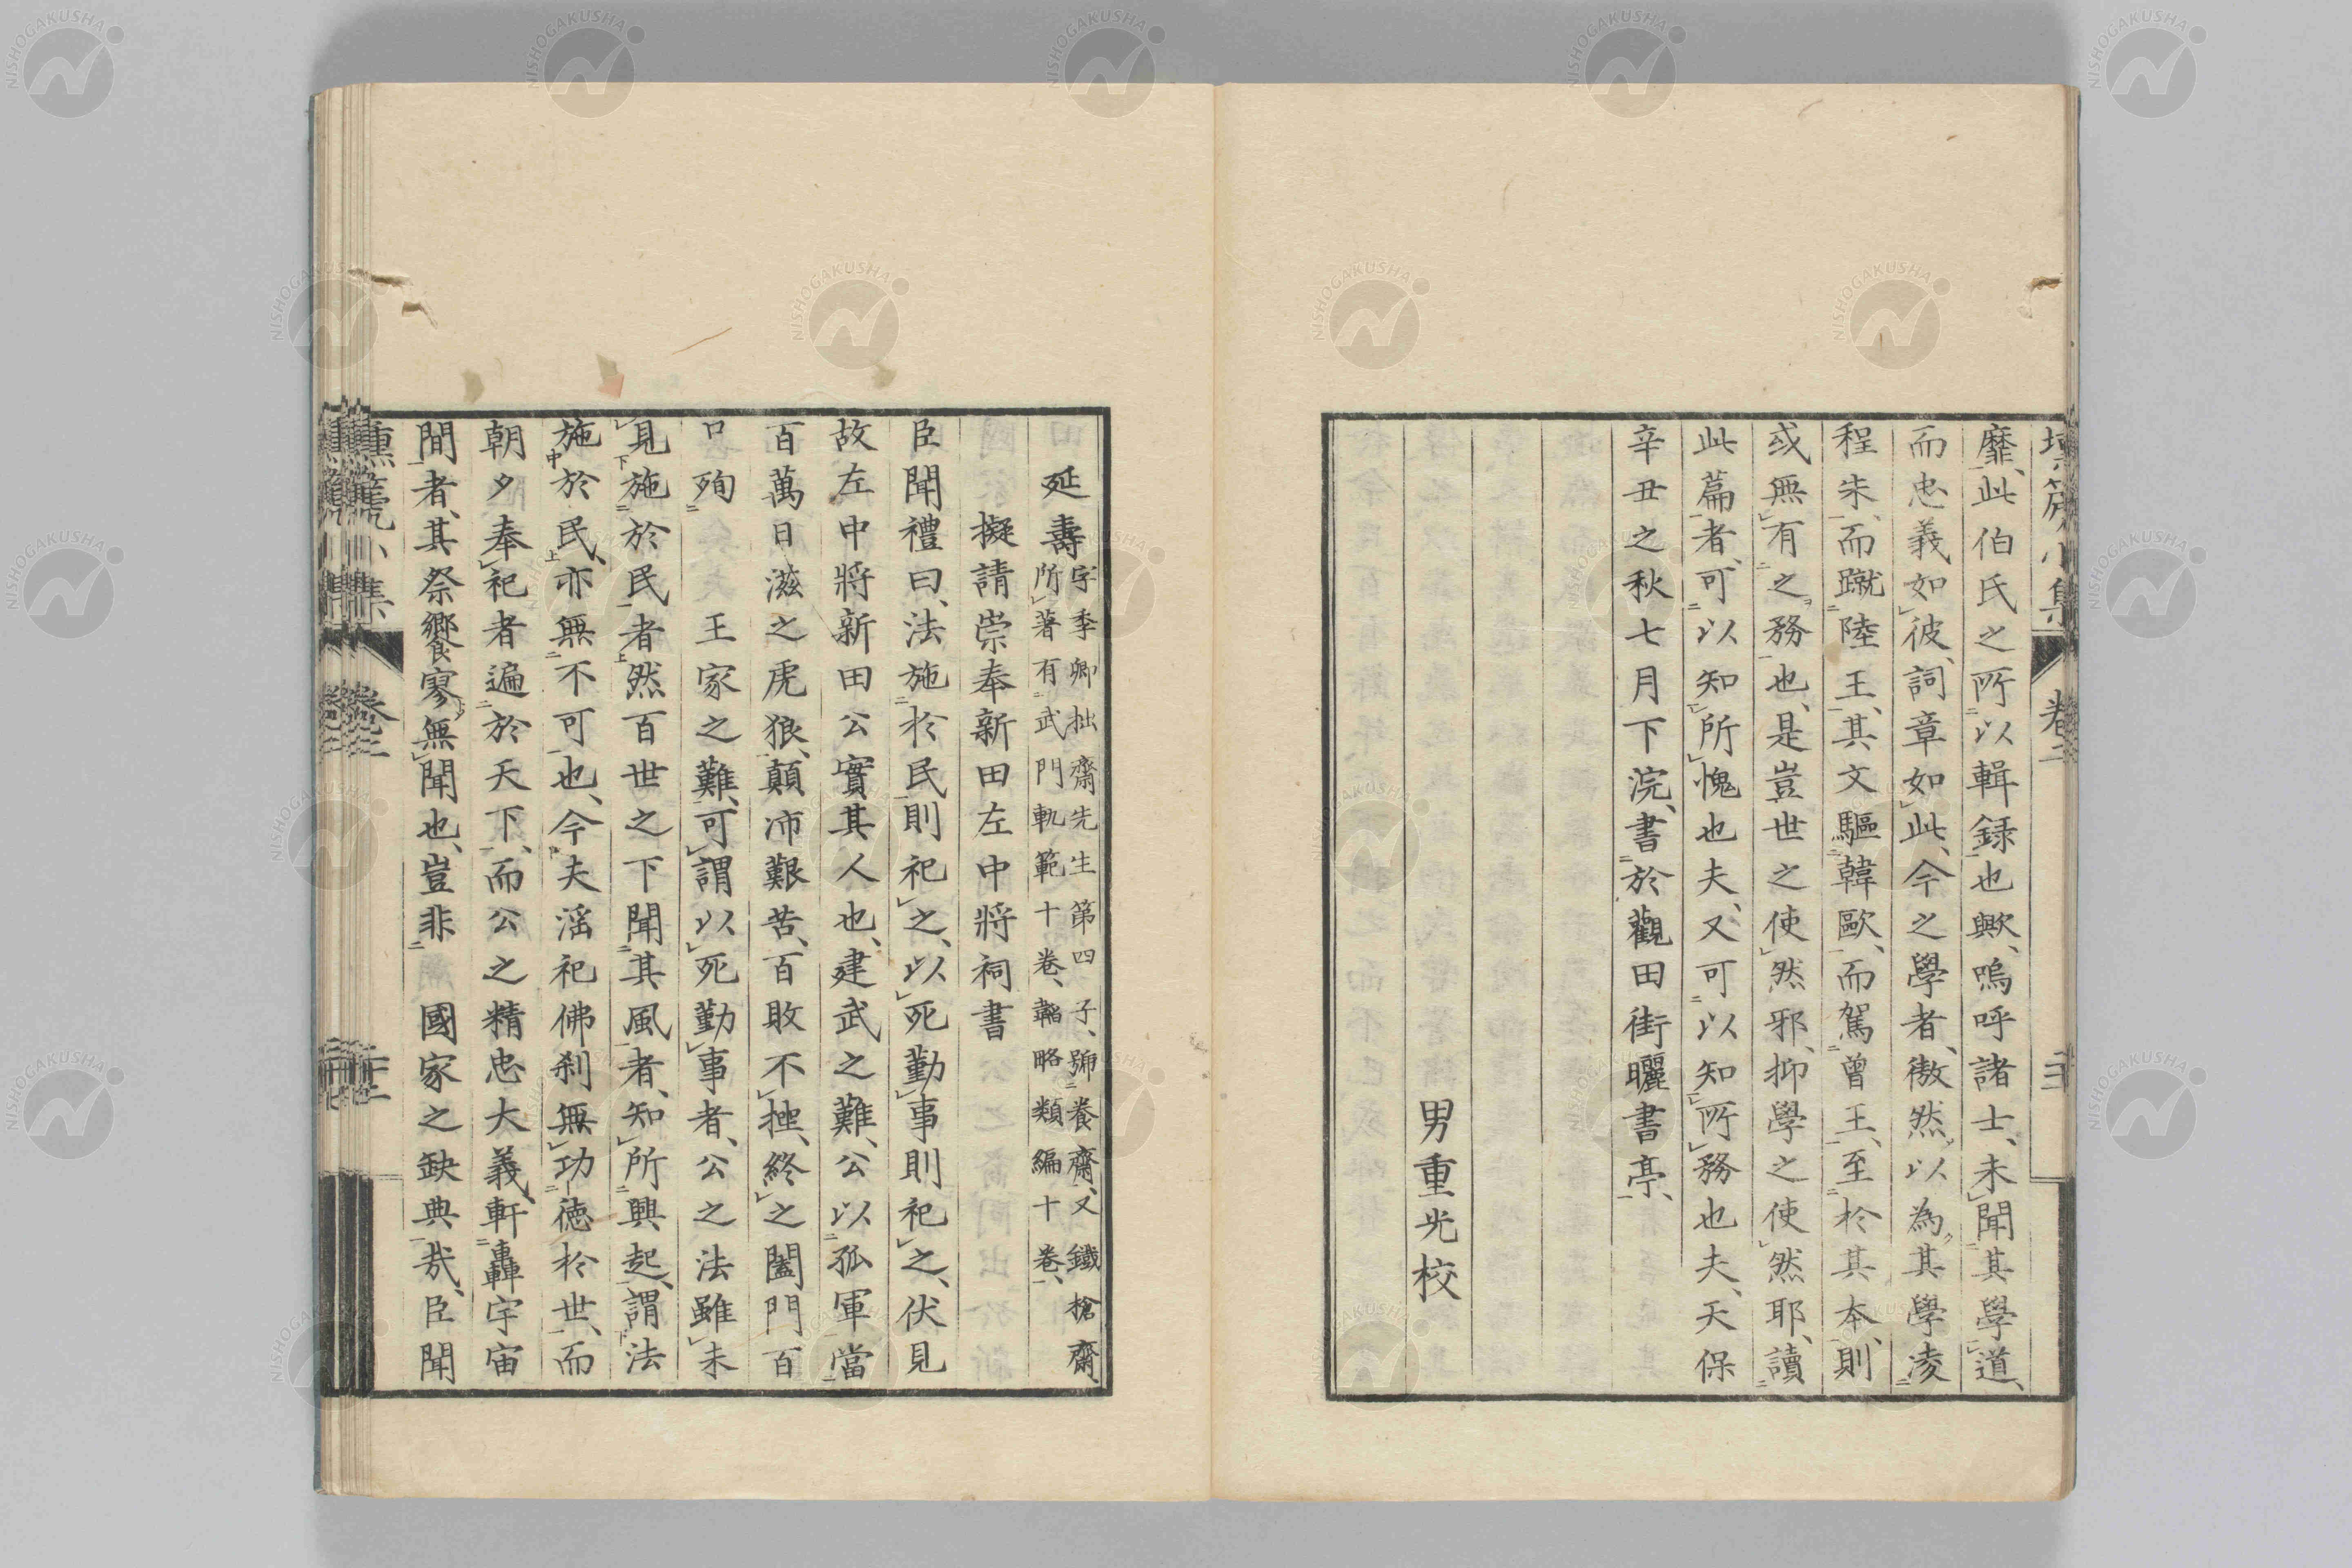 靡、此伯氏之所以輯録也歟、嗚呼諸士、未聞其學道、
而忠義如彼、詞章如此、今之學者、傲然以為其學凌
程朱、而蹴陸王、其文驅韓歐、而駕曾王、至於其本、則
或無有之務也、是豈世之使然邪、抑學之使然耶、讀
此篇者、可以知所愧也夫、又可以知所務也夫、天保
辛丑之秋七月下浣、書於觀田街曬書亭、
男重光校
延壽
字季卿拙齋先生第四子、號養齋、又鐵槍齋、
所著有武門軌範十卷、韜略類編十卷、
擬請崇奉新田左中將祠書
臣聞禮曰、法施於民、則祀之、以死勤事則祀之、伏見
故左中將新田公實其人也、建武之難、公以孤軍當
百萬日滋之虎狼、顛沛艱苦、百敗不挫、終之闔門百
口殉 王家之難、可謂以死勤事者、公之法雖未
見施於民者然百世之下聞其風者、知所興起、謂法
施於民、亦無不可也、今夫滛祀佛刹無功德於世、而
朝夕奉祀者遍於天下、而公之精忠大義、軒轟宇宙
間者、其祭饗寥無聞也、豈非 國家之缺典哉、臣聞
塤篪小集 卷二
NISHOGAKUSHA